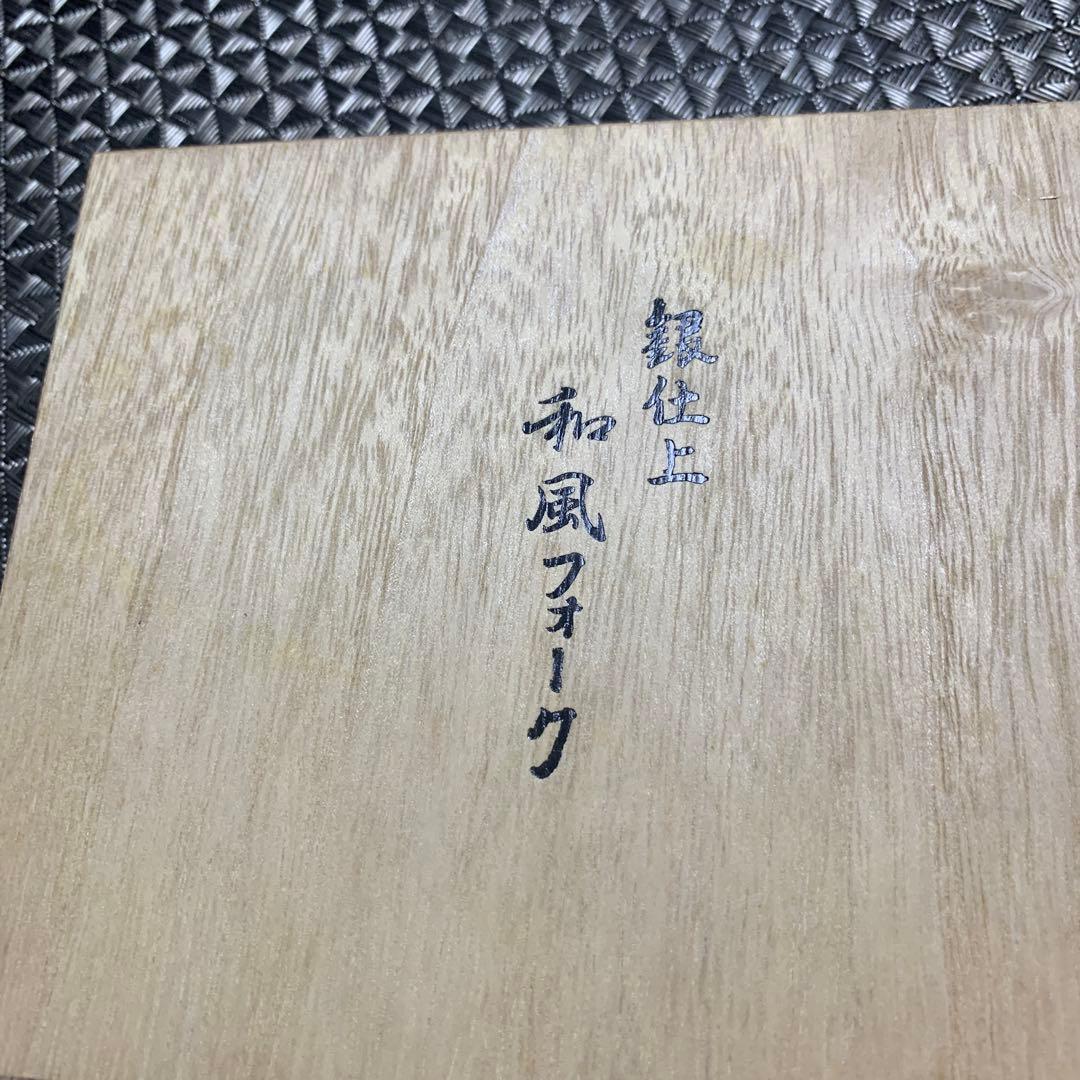 銀仕上
和風フォーク